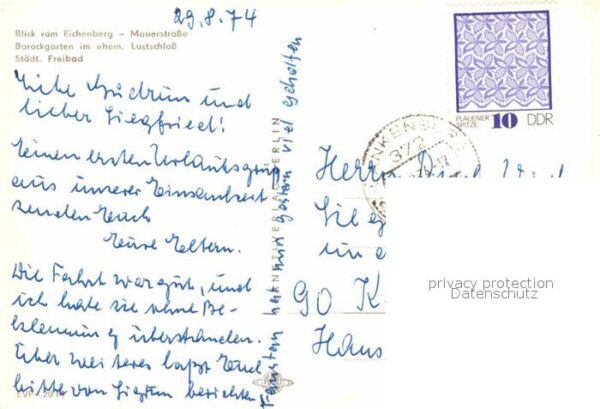 29.8.74
Blick vom Eichenberg – Mauerstraße
Barockgarten im ehem. Lustschloß
Städt. Freibad
Liebe Gudrun und
lieber Siegfried!
Einen ersten Urlaubsgruß
aus unserer Einsamkeit
senden Euch
Eure Eltern.
Die Fahrt war gut, und
ich habe sie ohne Be-
klemmung überstanden.
Über weiteres laßt Euch
bitte von berichten
hat mir gestern viel geholfen
VERLAG BERLIN
EVP
PLAUENER
SPITZE
10 DDR
BLANKENBURG
372
Herrn
und
90 K
Haus
privacy protection
Datenschutz